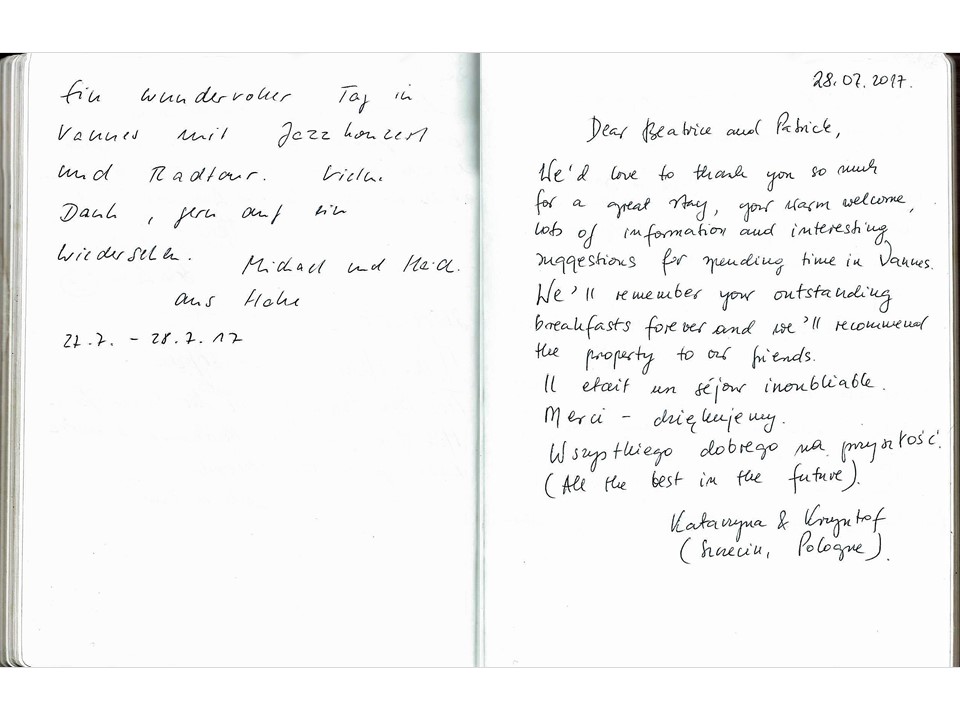 Ein wundervoller Tag in
Vannes mit Jazzkonzert
und Radtour. Vielen
Dank, gern auf ein
Wiedersehen.
Michael und Heidi
aus
27.7. - 28.7.17
28.07.2017.
Dear Beatrice and Patrick,
We'd love to thank you so much
for a great stay, your warm welcome,
lots of information and interesting
suggestions for spending time in Vannes.
We'll remember your outstanding
breakfasts forever and we'll recommend
the property to our friends.
Il etait un séjour inoubliable.
Merci - dziękujemy.
Wszystkiego dobrego na przyszłość.
(All the best in the future).
Katarzyna & Krzysztof
(Szczecin, Pologne).